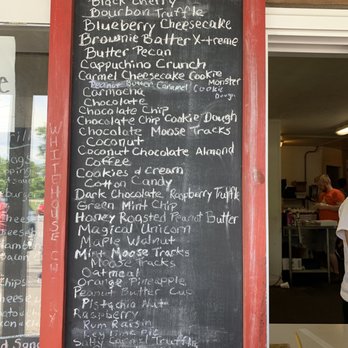 Black Cherry
Bourbon Truffle
Blueberry Cheesecake
Brownie Batter X-treme
Butter Pecan
Cappuchino Crunch
Carmel Cheesecake Cookie Monster
Peanut Butter Caramel Cookie Dough
Carmocha
Chocolate
Chocolate Chip
Chocolate Chip Cookie Dough
Chocolate Moose Tracks
Coconut
Coconut Chocolate Almond
Coffee
Cookies & cream
Cotton Candy
Dark Chocolate Raspberry Truffle
Green Mint Chip
Honey Roasted Peanut Butter
Magical Unicorn
Maple Walnut
Mint Moose Tracks
Moose Tracks
Oatmeal
Orange Pineapple
Peanut Butter Cup
Pistachio Nut
Raspberry
Rum Raisin
Key Lime Pie
Salty Caramel Truffle
WHITEHOUSE